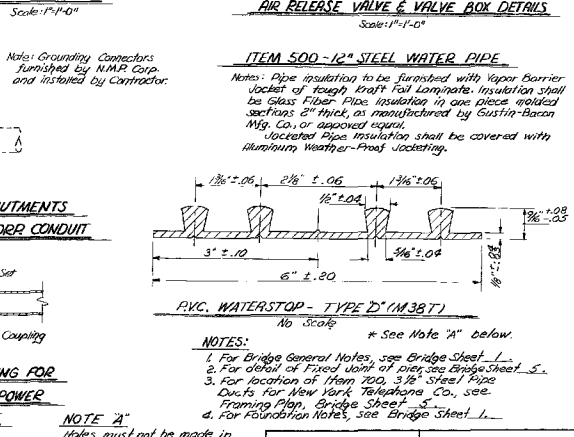 Scale: 1"=1'-0"
Note: Grounding Connectors
furnished by N.M.P. Corp.
and installed by Contractor.
UTMENTS
ORP. CONDUIT
Coupling
NG FOR
POWER
NOTE "A"
Holes must not be made in
AIR RELEASE VALVE & VALVE BOX DETAILS
Scale: 1"=1'-0"
ITEM 500 - 12" STEEL WATER PIPE
Notes: Pipe insulation to be furnished with Vapor Barrier
Jacket of tough Kraft Foil Laminate. Insulation shall
be Glass Fiber Pipe Insulation in one piece molded
sections 2" thick, as manufactured by Gustin-Bacon
Mfg. Co., or appoved equal.
Jacketed Pipe Insulation shall be covered with
Aluminum Weather-Proof Jacketing.
1 3/16" ±.06
2 1/8" ±.06
1 3/16" ±.06
1/2" ±.04
9/16" +.08 -.05
3" ±.10
5/16" ±.04
6" ±.20
P.V.C. WATERSTOP - TYPE "D" (M38T)
No Scale
* See Note "A" below.
NOTES:
1. For Bridge General Notes, see Bridge Sheet 1.
2. For detail of Fixed Joint at pier, see Bridge Sheet 5.
3. For location of Item 700, 3 1/2" Steel Pipe
Ducts for New York Telephone Co., see
Framing Plan, Bridge Sheet 5.
4. For Foundation Notes, see Bridge Sheet 1.